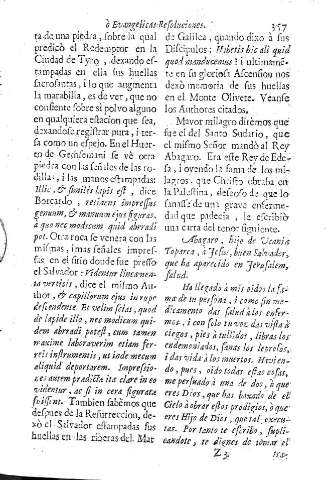 ò Evangelicas Resoluciones. 357
ta de una piedra, sobre la qual
predicò el Redemptor en la
Ciudad de Tyro, dexando es-
tampadas en ella sus huellas
sacrosantas, i lo que augmenta
la marabilla, es de ver, que no
consiente sobre si polvo alguno
en qualquiera estacion que sea,
dexandose registrar pura, i ter-
sa como un espejo. En el Huer-
to de Gethsemani se vè otra
piedra con las señales de las ro-
dillas, i las manos estampadas:
Illic, & similis lapis est, dice
Borcardo, retinens impressas
genuum, & manuum ejus figuras,
à quo nec modicum quid abradi
potest. Otra roca se venera con las
mismas, i mas señales impres-
sas en el sitio donde fue presso
el Salvador: Videntur lineamen-
ta vertisii, dice el mismo Au-
thor, & capillorum ejus in rupe
descendente. Et velim scias, quod
de lapide illo, nec modicum qui-
dem abradi potest, cum tamen
maxime laboraverim etiam fer-
reis instrumentis, ut inde mecum
aliquid deportarem. Impressio-
nes autem prædictæ ita claræ in eo
videntur, ac si in cera figuratæ
fuissent. Tambien sabèmos que
despues de la Resurreccion, de-
xò el Salvador estampadas sus
huellas en las riberas del Mar
de Galilea, quando dixo à sus
Discipulos: Habetis hic ali quid
quod manducemus? i ultimamẽ-
te en su gloriosa Ascension nos
dexò memoria de sus huellas
en el Monte Olivete. Veanse
los Authores citados.
Mayor milagro dirèmos que
fue el del Santo Sudario, que
el mismo Señor mandò al Rey
Abagaro. Era este Rey de Ede-
sa, i oyendo la fama de los mi-
lagros, que Christo obraba en
la Palestina, deseoso de que lo
sanasse de una grave enferme-
dad que padecia, le escribiò
una carta del tenor siguiente.
Abagaro, hijo de Ucania
Toparca, à Jesus, buen Salvador,
que ha aparecido en Jerusalem,
salud.
Ha llegado à mis oidos la fa-
ma de tu persona, i como sin me-
dicamento das salud à los enfer-
mos, i con solo tu voz das vista à
ciegos, pies à tullidos, libras los
endemoniados, sanas los leprosos,
i das vida à los muertos. Havien-
do, pues, oido todas estas cosas,
me persuado à una de dos, ò que
eres Dios, que has baxado de el
Cielo à obrar estos prodigios, ò que
eres Hijo de Dios, que tal execu-
tas. Por tanto te escribo, supli-
candote, te dignes de tomar el
Z 3